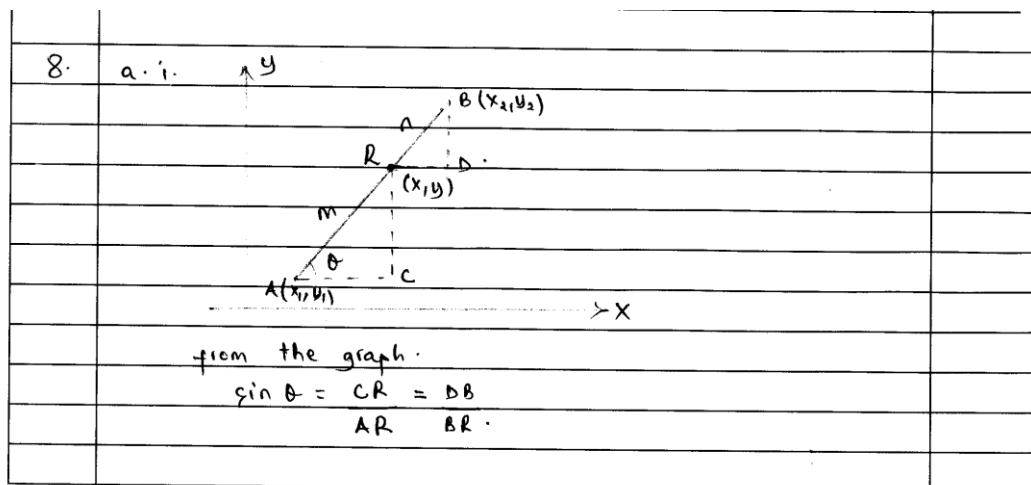 8. a. i.
y
B (x₂, y₂)
n
R
D.
(x, y)
m
θ
C
A (x₁, y₁)
x
from the graph.
Sin θ = CR/AR = DB/BR.